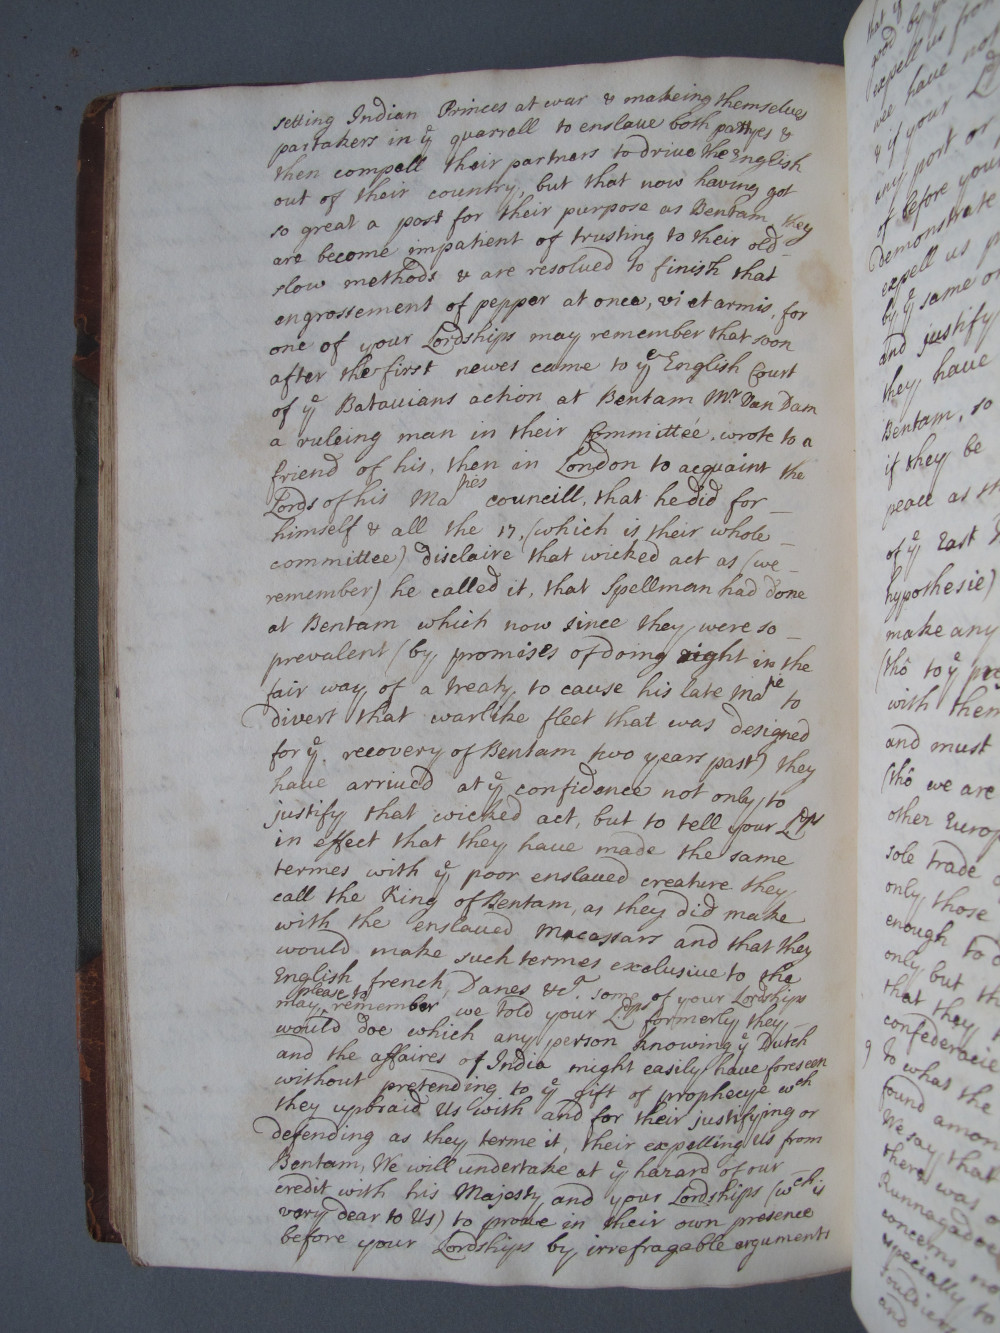 setting Indian Princes at war & makeing themselves
partakers in yᵉ quarrall to enslave both partyes &
then compell their partners to drive the English
out of their country, but that now having got
so great a post for their purpose as Bentam they
are become impatient of trusting to their old
slow methods & are resolued to finish that
engrossement of pepper at once, vi et armis, for
one of your Lordships may remember that soon
after the first newes came to yᵉ English Court
of yᵉ Batauians action at Bentam Mʳ Van Dam
a ruleing man in their Committee, wrote to a
friend of his, then in London to acquaint the
Lords of his Maᵗⁱᵉˢ councill, that he did for
himself & all the 17, (which is their whole
committee) disclaire that wicked act as (we
remember) he called it, that Spellman had done
at Bentam which now since they were so
prevalent (by promises of doing right in the
fair way of a treaty, to cause his late Maᵗⁱᵉ to
divert that warlike fleet that was designed
for yᵉ recovery of Bentam two years past) they
have arriued at yᵉ confidence not only to
justify that wicked act, but to tell your Lᵖᵖˢ
in effect that they haue made the same
termes with yᵉ poor enslaued creature they
call the King of Bentam, as they did make
with the enslaued Macassars and that they
would make such termes exclusive to the
English, french, Danes &cᵃ. some of your Lordships
may please to remember we told your Lᵖᵖˢ formerly they
would doe which any person knowing yᵉ Dutch
and the affaires of India might easily have foreseen
without pretending to yᵉ gift of prophecye wᶜʰ
they upbraid Us with and for their justifying or
defending as they terme it, their expelling Us from
Bentam, We will undertake at yᵉ hazard of our
credit with his Majesty and your Lordships (wᶜʰ is
very dear to Us) to prove in their own presence
before your Lordships by irrefragable arguments
expell us from
we have not
& if your
any port or
of before your
demonstrate
expell us
by yᵉ same
and justify
they have
Bentam, so
if they be
peace as
of yᵉ East
hypothesie)
make any
(thô to yᵉ
with them
and must
(thô we are
other Europ
sole trade
only those
enough to
only but
that they
confederacie
9 To what the
found among
We say that
there was
Runnagadoe
concerns no
specially to
souldiers
and